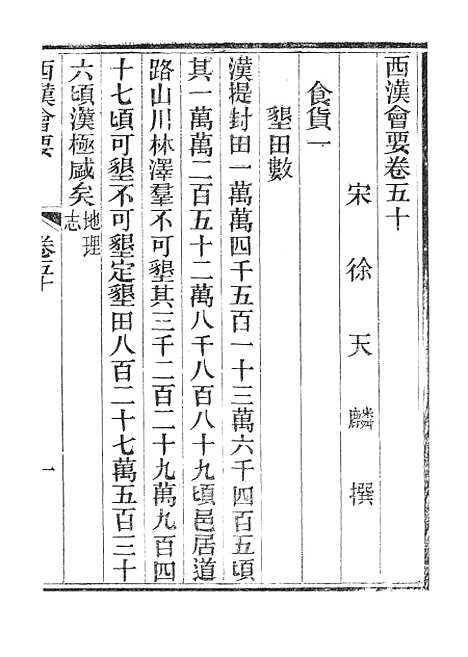 西漢會要卷五十
宋徐天麟撰
食貨一
墾田數
漢提封田一萬萬四千五百一十三萬六千四百五頃
其一萬萬二百五十二萬八千八百八十九頃邑居道
路山川林澤羣不可墾其三千二百二十九萬九百四
十七頃可墾不可墾定墾田八百二十七萬五百三十
六頃漢極盛矣地理志
西漢會要 卷五十 一